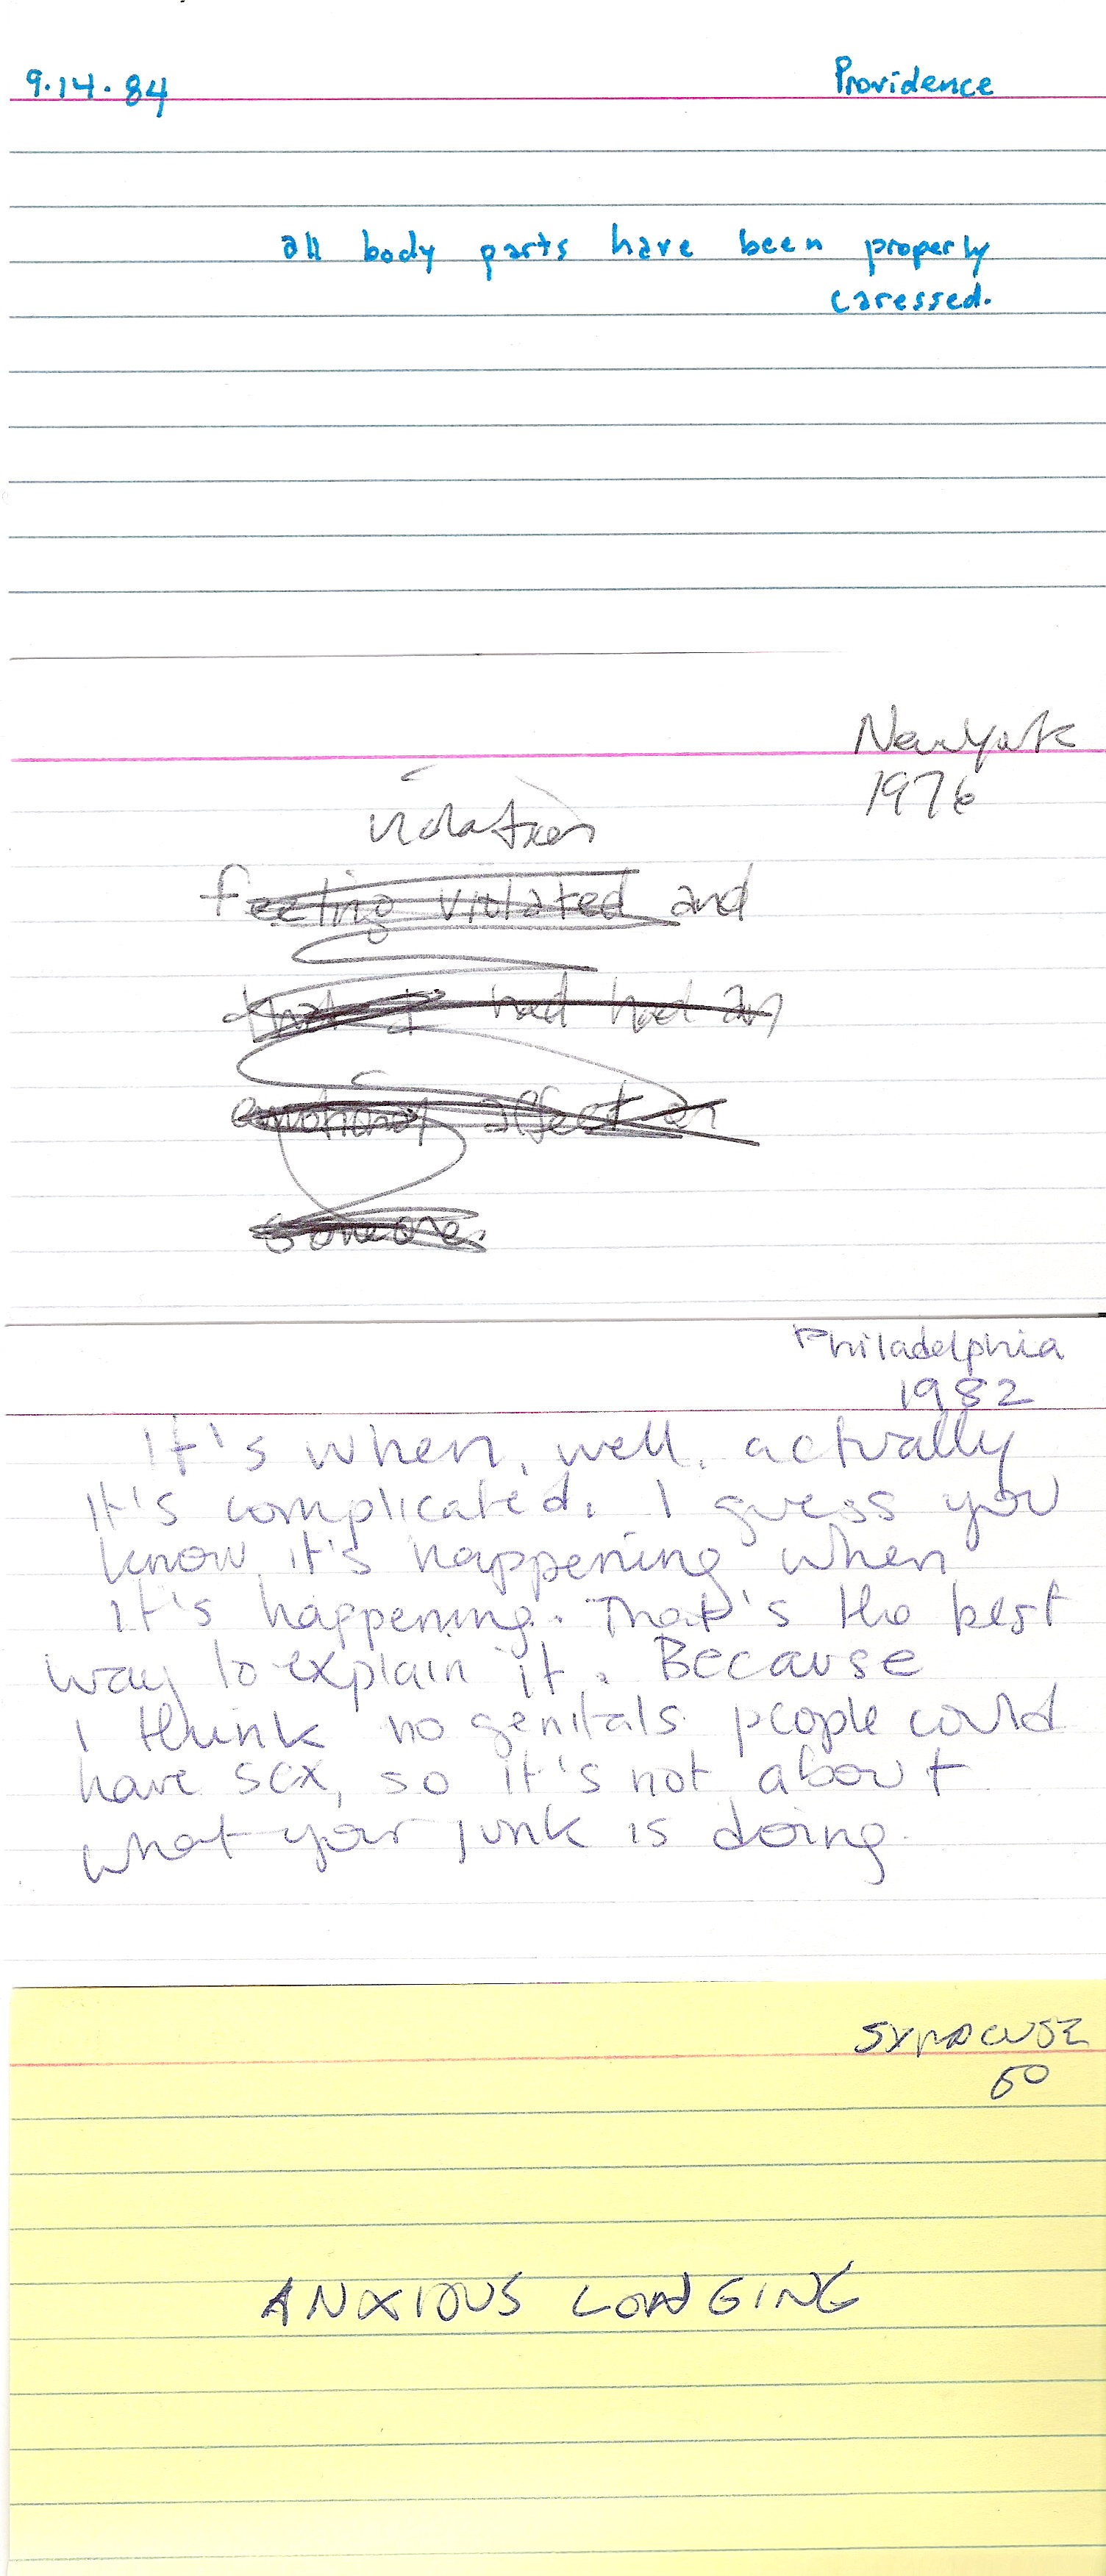 9.14.84 Providence
all body parts have been properly
caressed.
New York
1976
violation
feeling violated and
that I had had an
emotional affect on
someone.
Philadelphia
1982
It's when, well, actually
it's complicated. I guess you
know it's happening when
it's happening. That's the best
way to explain it. Because
I think no genitals people could
have sex, so it's not about
what your junk is doing.
SYRACUSE
60
ANXIOUS LONGING